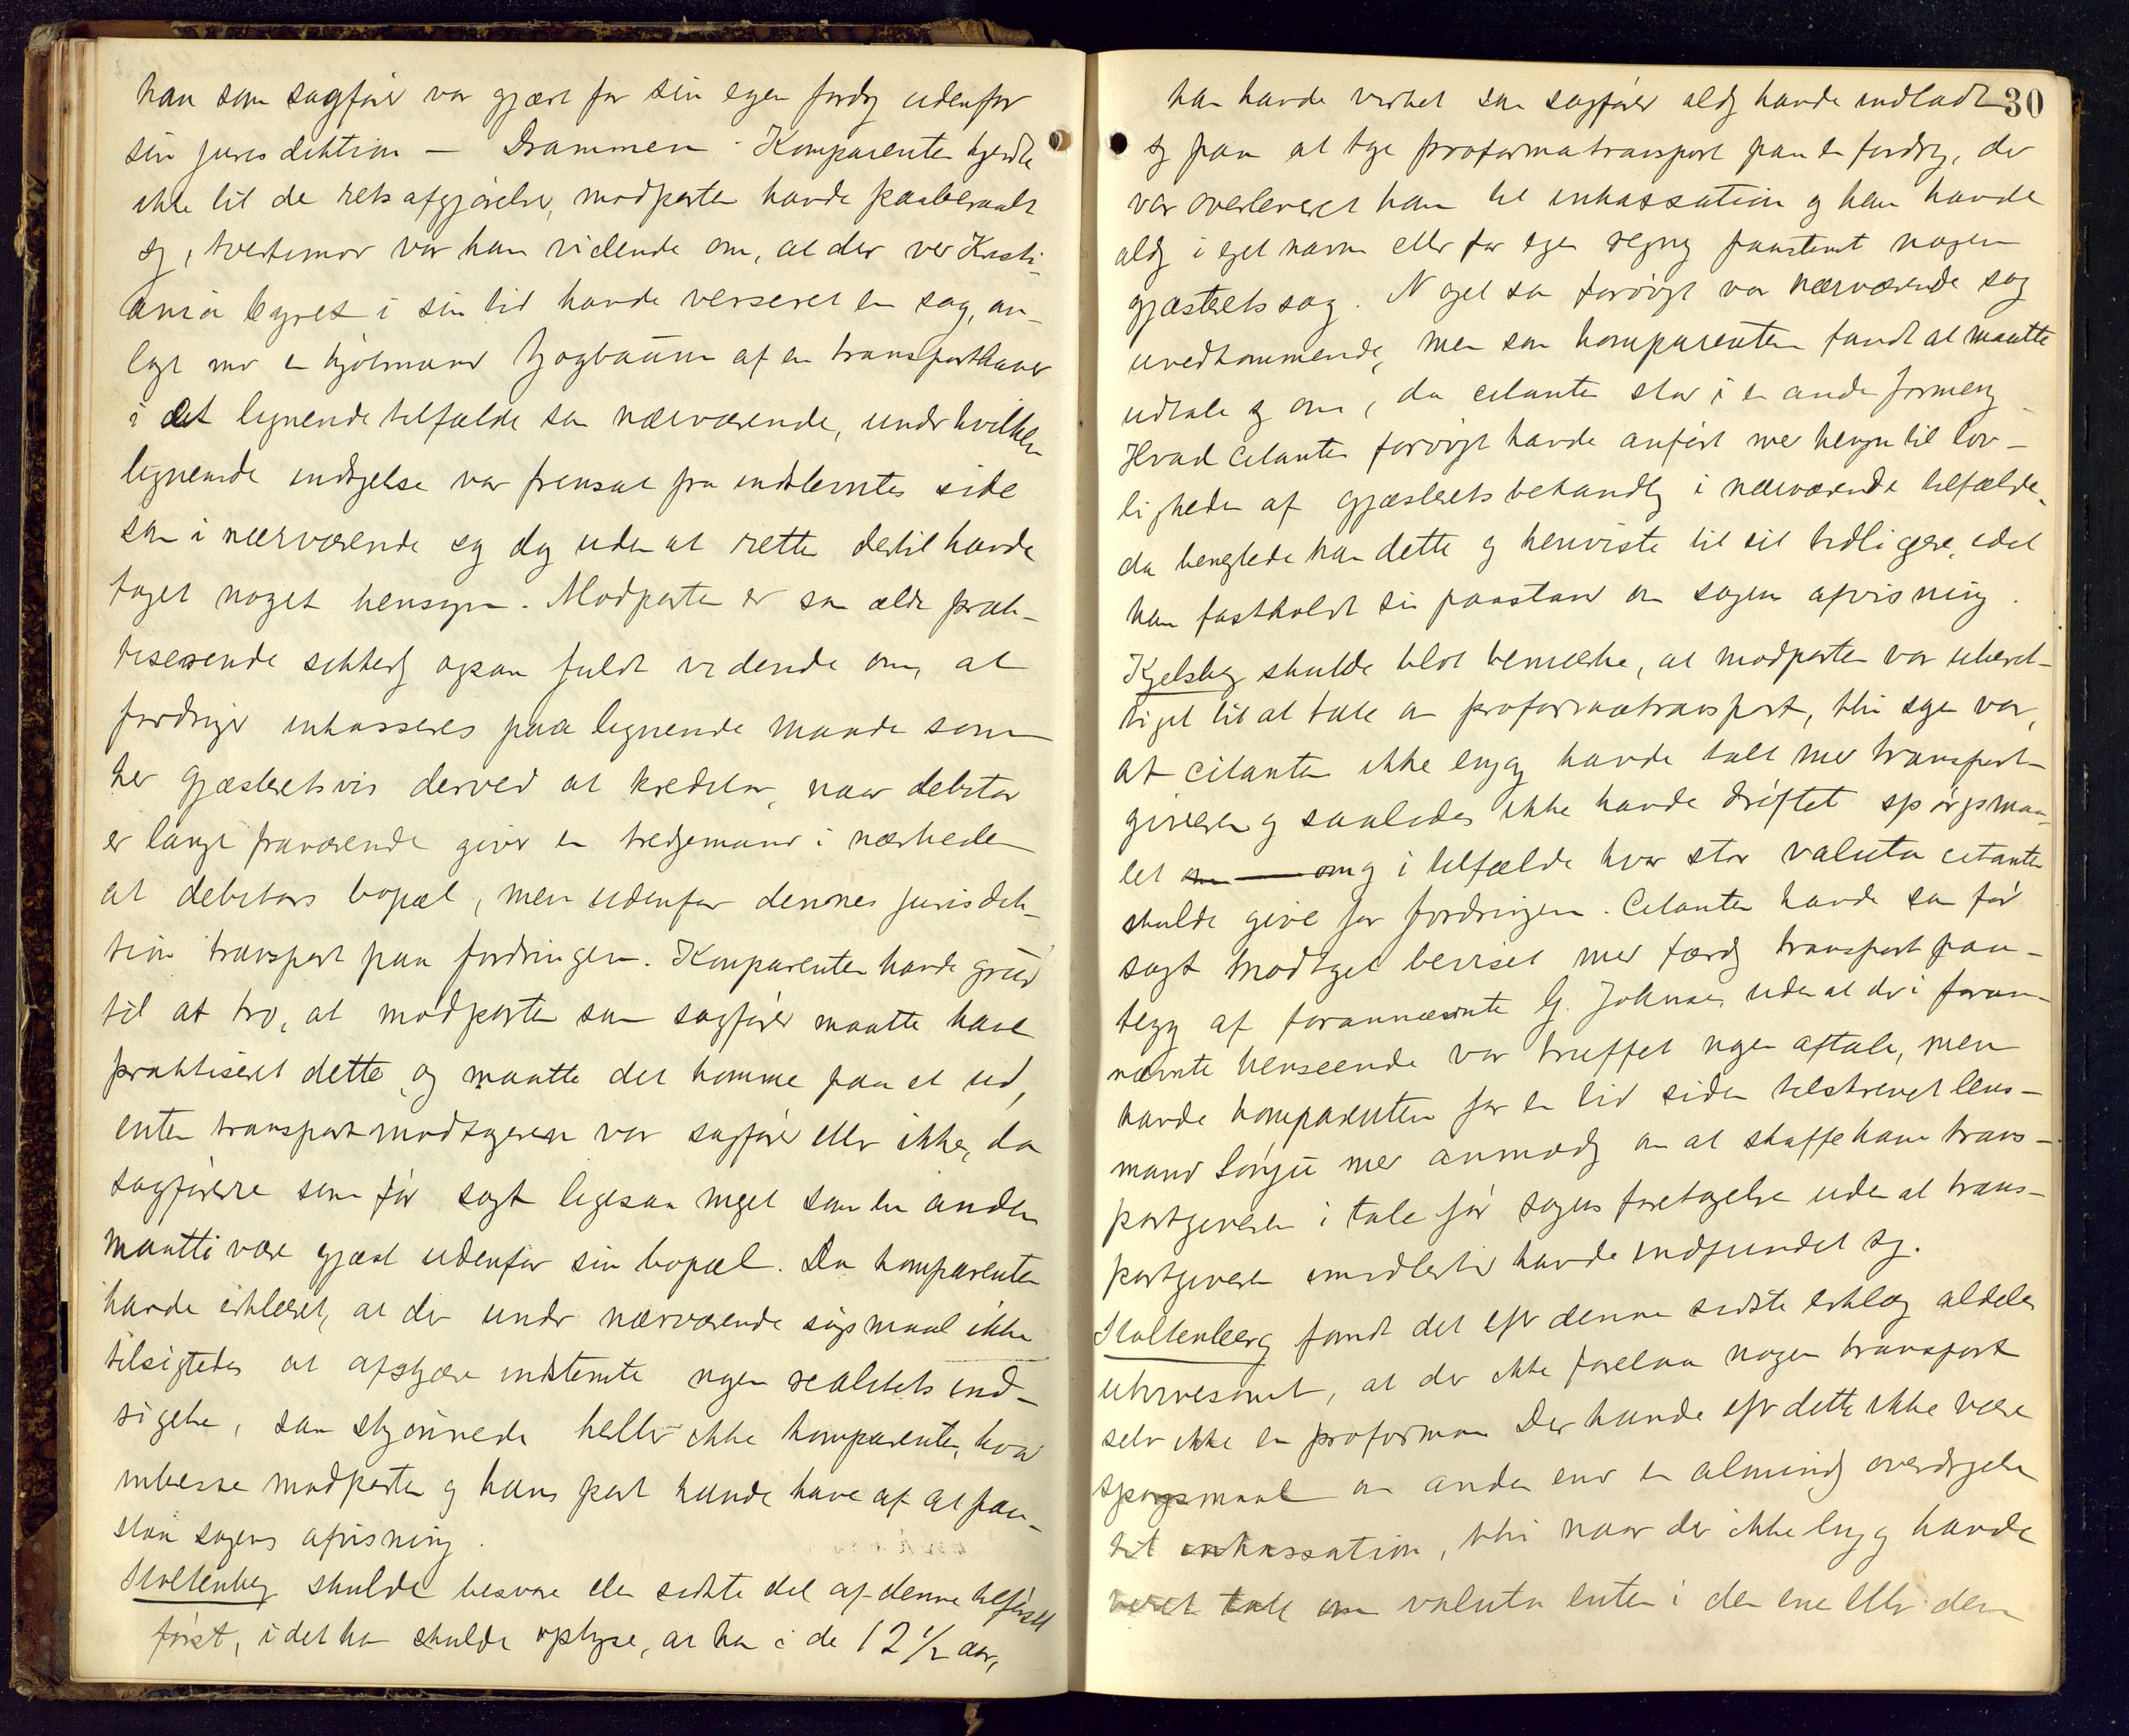 han som sagfører var gjæst for sin egen fordg udenfor
sin jurisdiktion – Drammen. Komparenten kjendte
ikke til de retsafgjørelser, modparten havde paaberaabt
sg, tvertimod var han vidende om, at der ved Kristi-
ania byret i sin tid havde verseret en sag, an-
lagt mod en kjøbmand af en transporthaver
i et lignende tilfælde som nærværende, under hvilken
lignende indsigelse var fremsat fra indstevntes side
som i nærværende sag dog uden at retten dertil havde
taget noget hensyn. Modparten er som ældre prak-
tiserende sikkerlg ogsaa fuldt vidende om, at
fordringer inkasseres paa lignende maade som
her gjæsteretsvis derved at kreditor, naar debitor
er langt fraværende giver en tredjemand i nærheden
at debitors bopæl, men udenfor dennes jurisdik-
tion transport paa fordringen. Komparenten havde grund
til at tro, at modparten som sagfører maatte have
praktiseret dette og maatte det komme paa et ud,
enten transportmodtageren var sagfører eller ikke, da
sagførere som før sagt ligesaa meget som en anden
maatte være gjæst udenfor sin bopæl. Da komparenten
havde erklæret, at der under nærværende søgsmaal ikke
tilsigtedes at afskjære indstevnte ngen realitetsind-
sigelse, saa skjønnede heller ikke komparenten, hvad
interesse modparten og hans part kunde have af at paa-
staa sagens afvisning.
Stoltenberg skulde besvare den sidste del af denne tilførsel
først, idet han skulde oplyse, at han i de 12 ½ aar,
30
han havde virket som sagfører aldg havde indladt
sg paa at tage proformatransport paa en fordrg, der
var overleveret ham til inkassation og han havde
aldg i eget navn eller for egen regng paastemt nogen
gjæsteretssag. Noget som forøvrigt var nærværende sag
uvedkommende, men som komparenten fandt at maatte
udtale sg om, da citanten stod i en anden formeng.
Hvad citanten forøvrigt havde anført med hensyn til lov-
ligheden af gjæsteretsbehandlg i nærværende tilfælde,
da benegtede han dette og henviste til sit tidligere, idet
han fastholdt sin paastand om sagens afvisning.
Kjelsberg skulde blot bemærke, at modparten var uberet-
tiget til at tale om proformatransport, thi sagen var,
at citanten ikke engang havde talt med transport-
giveren og saaledes ikke havde drøftet spørgsmaa-
let om og i tilfælde hvor stor valuta citanten
skulde give for fordringen. Citanten havde som før
sagt modtaget beviset med færdg transportpaa-
tegng af forannævnte G. Johnsen uden at der i foran-
nævnte henseende var truffet ngen aftale, men
havde komparenten for en tid siden tilskrevet lens-
mand med anmodng om at skaffe ham trans-
portgiveren i tale før sagens foretagelse uden at trans-
portgiveren imidlertid havde indfundet sg.
Stoltenberg fandt det efter denne sidste erklæring aldeles
utvivlsomt, at der ikke forelaa nogen transport
selv ikke en proforma. Der kunde efter dette ikke være
spørgsmaal om andet end en almindelg overdragelse
til inkassation, thi naar der ikke engang havde
været tale om valuta enten i den ene eller den